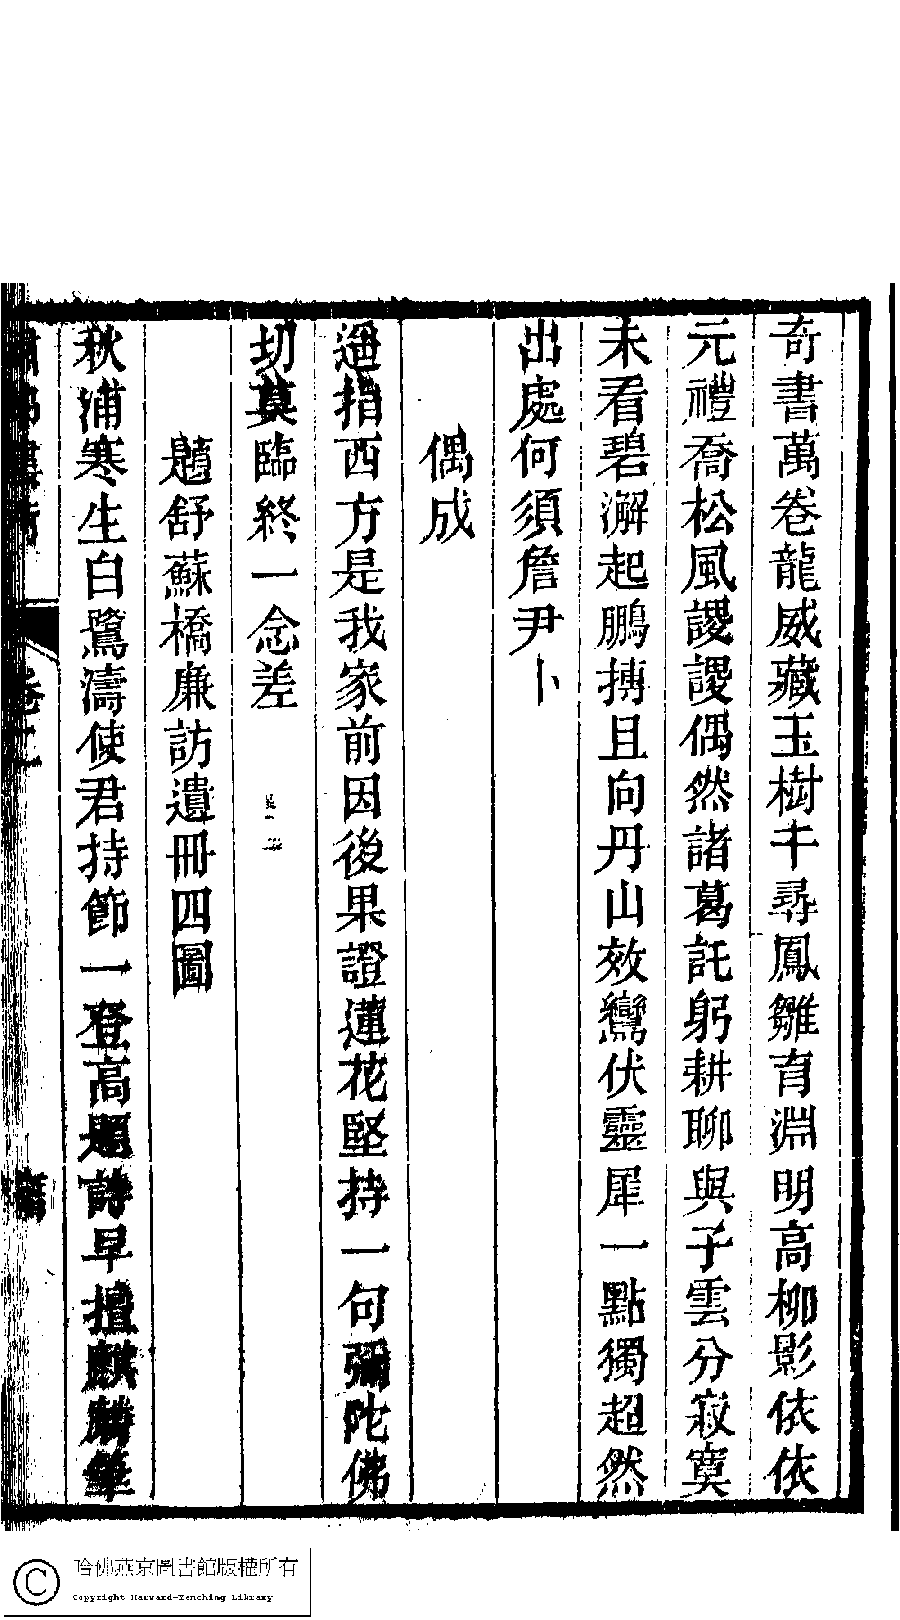 奇書萬卷龍威藏玉樹千尋鳳雛育淵明高柳影依依
元禮喬松風謖謖偶然諸葛託躬耕聊與子雲分寂寞
未看碧澥起鵬摶且向丹山效鸞伏靈犀一點獨超然
出處何須詹尹卜
偶成
逈指西方是我家前因後果證蓮花堅持一句彌陀佛
切莫臨終一念差
題舒蘇橋廉訪遺冊四圖
秋浦寒生白鷺濤使君持節一登高題詩早擅麒麟筆
卷二
哈佛燕京圖書館版權所有
Copyright Harvard-Yenching Library